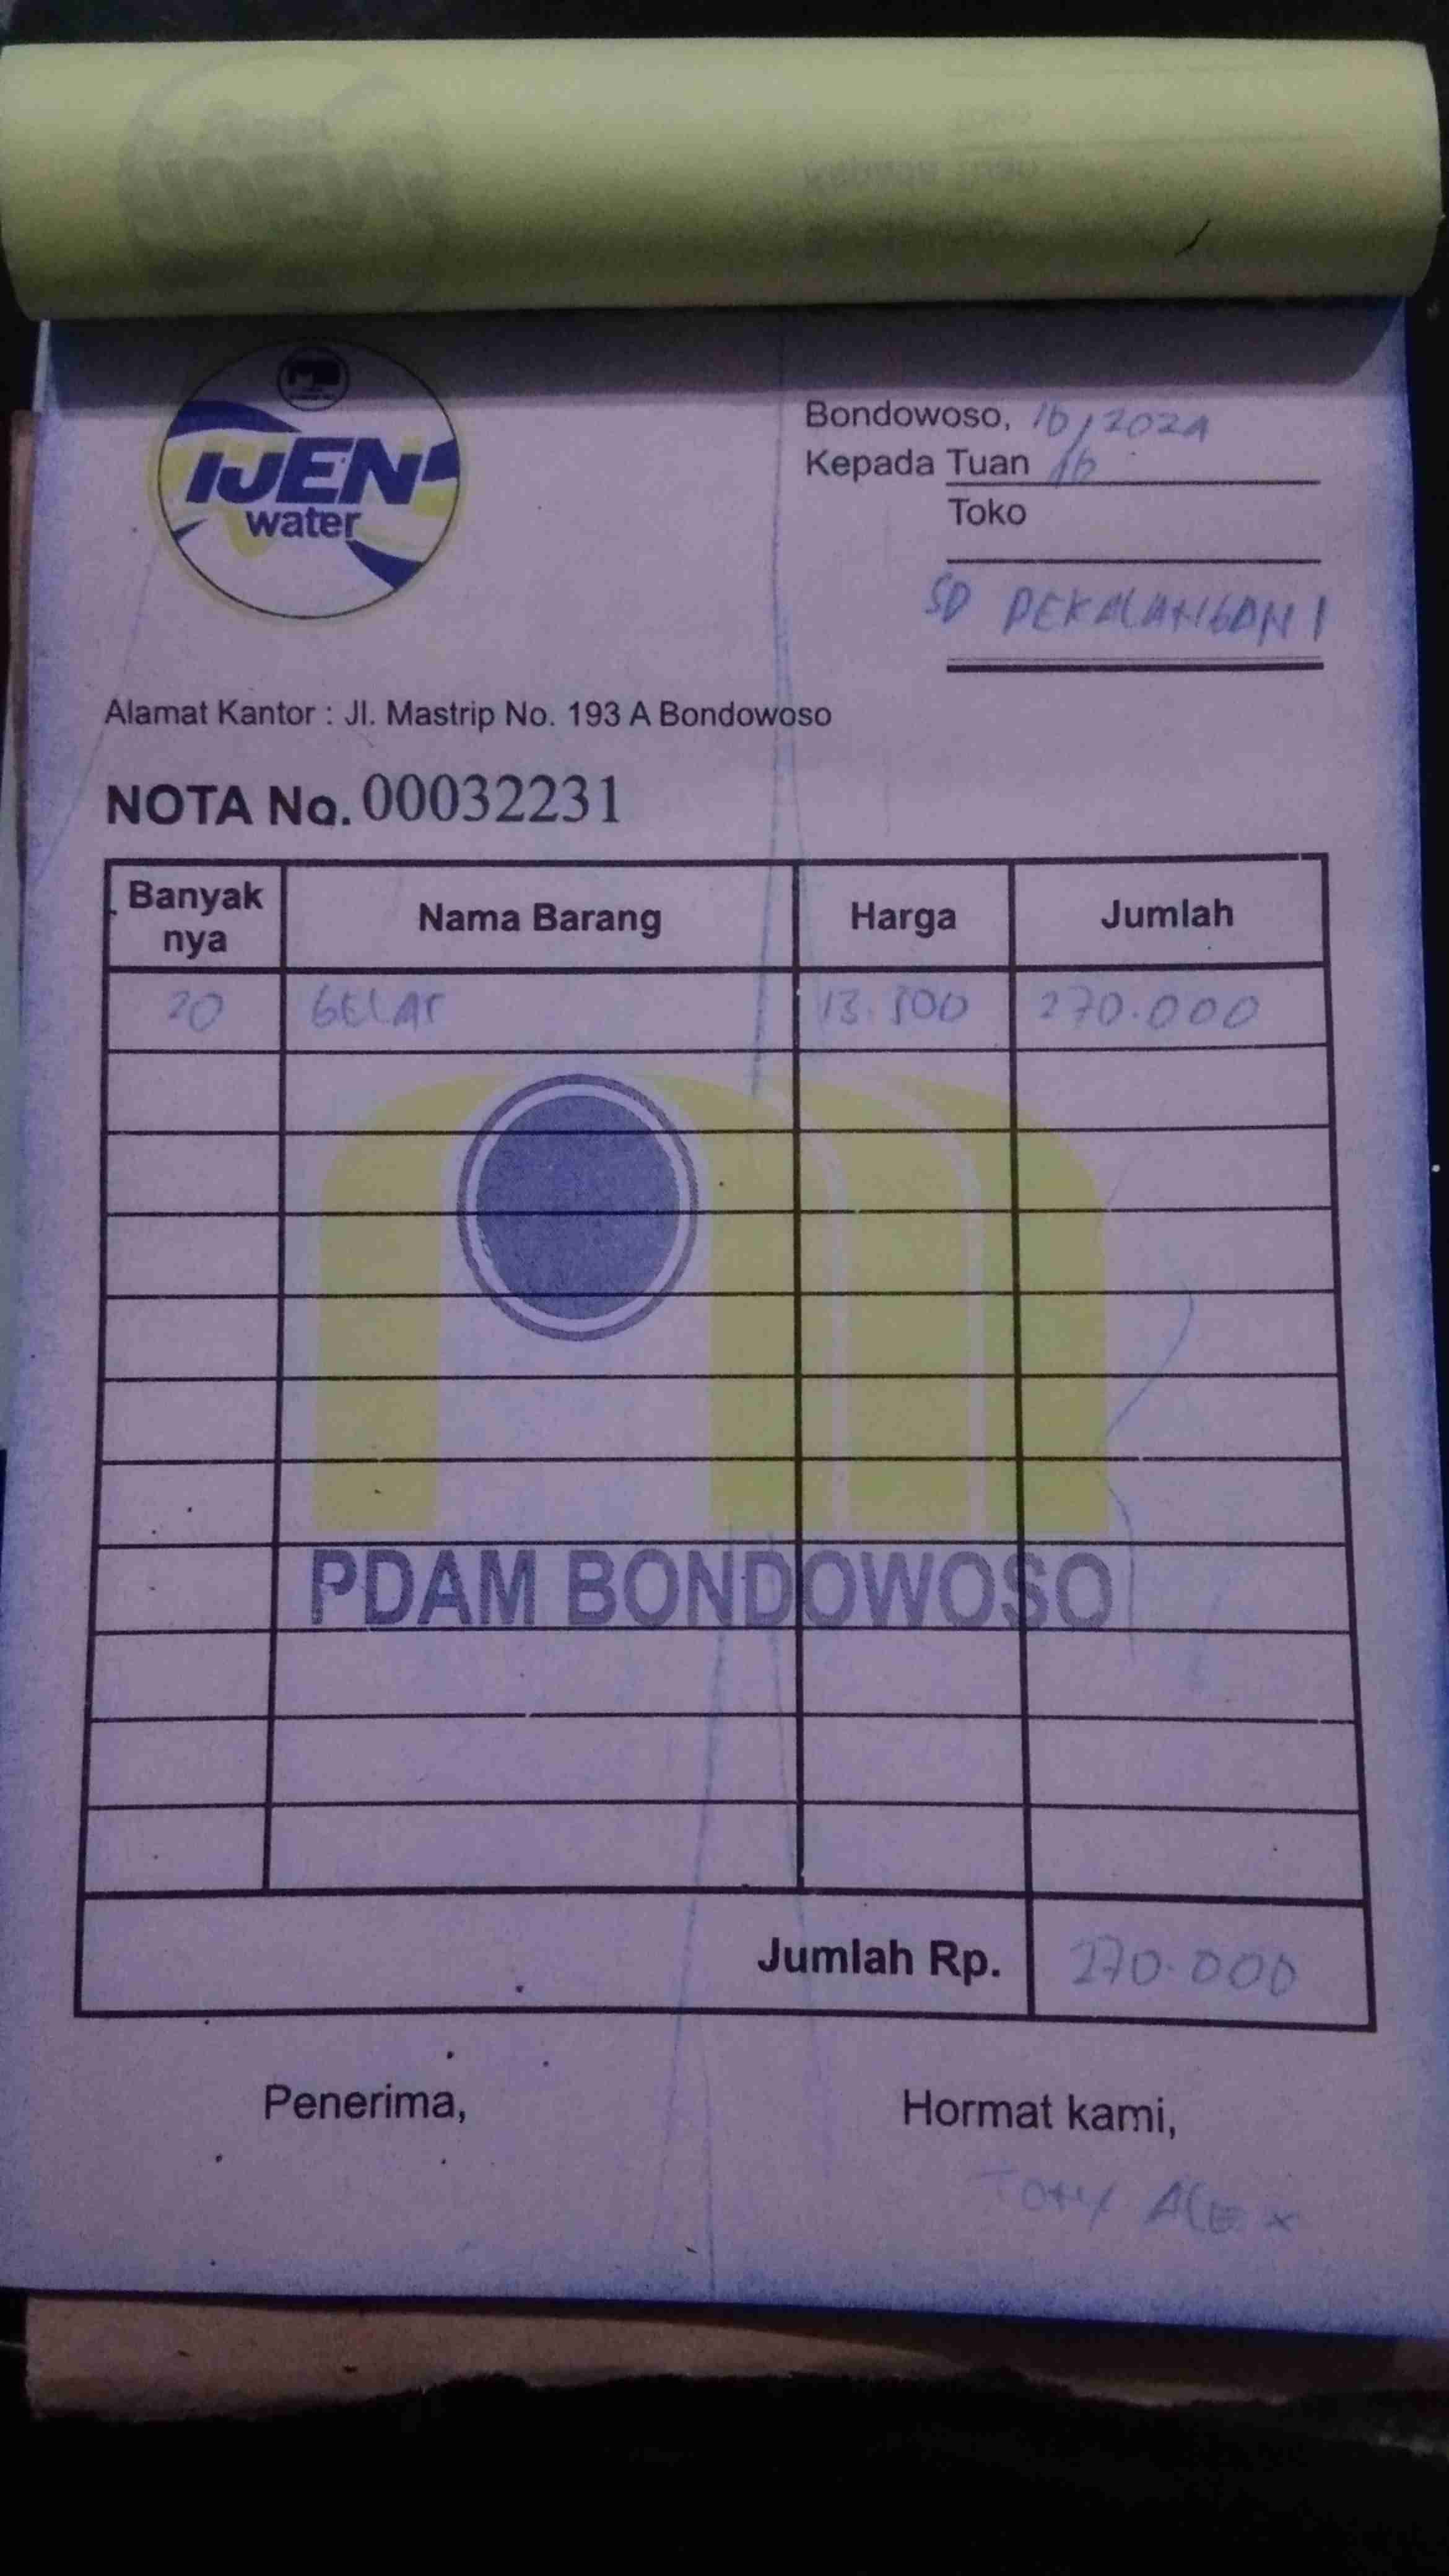 IJEN
water
Bondowoso, 16/2024
Kepada Tuan
Toko
SD PEKALANGAN 1
Alamat Kantor : Jl. Mastrip No. 193 A Bondowoso
NOTA No. 00032231
Banyak nya Nama Barang Harga Jumlah
20 GELAS 13.500 270.000
PDAM BONDOWOSO
Jumlah Rp. 270.000
Penerima, Hormat kami,
TONY ALEX